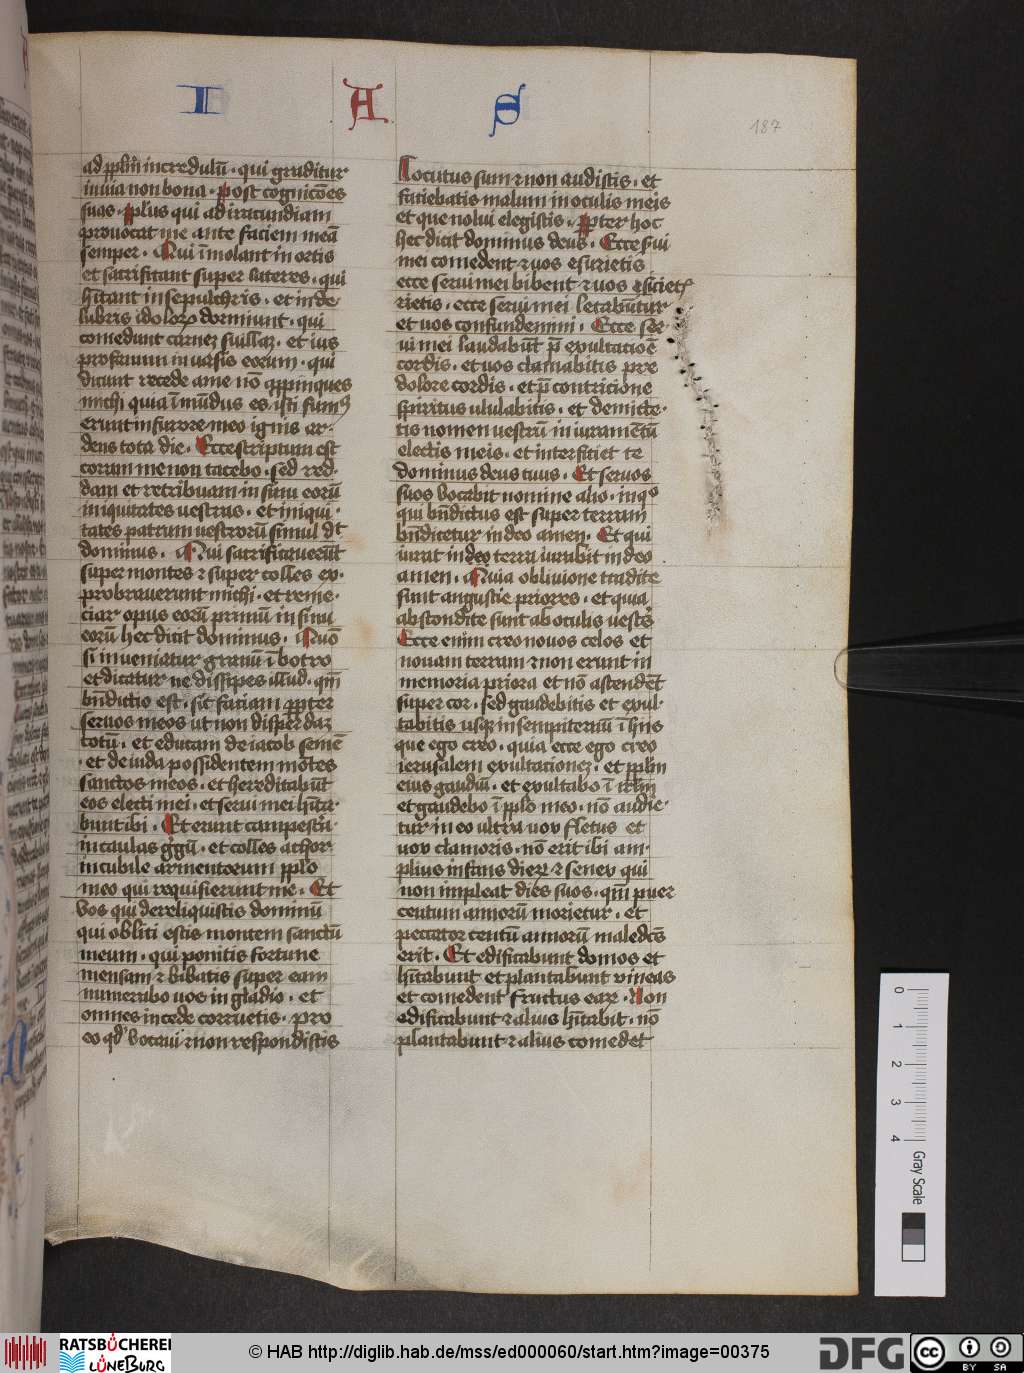 I A S
187
ad pplm̄ incredulū · qui graditur
in via non bona · post cogitacōes
suas · pplus qui ad iracundiam
provocat me ante faciem meā
semper · Qui īmolant in ortis
et sacrificant super lateres · qui
hītant in sepulchris · et in de
lubris idolorꝝ dormiunt · qui
comedunt carnez suillaz · et ius
profanum in vasis eorum · qui
dicunt recede a me nō appinques
michi quia īmūdus es · isti fumꝰ
erunt in furore meo ignis ar·
dens tota die · Ecce scriptum est
coram me non tacebo · sed red·
dam et retribuam in sinu eorū
iniquitates vestras · et iniqui·
tates patrum vestrorū simul dt
dominus · Qui sacrificaverūt
super montes ⁊ super colles ex·
probraverunt michi · et reme·
ciar opus eorū primū in sinu
eorū hec dicit dominus · Quō
si inveniatur granū ī botro
et dicatur ne dissipes illud · qm̄
bn̄dictio est · sic faciam ꝓpter
servos meos ut non disperdaz
totū · et educam de iacob semē
· et de iuda possidentem mōtes
sanctos meos · et hereditabūt
eos electi mei · et servi mei hīta·
bunt ibi · Et erunt campestria
in caulas gregū · et colles achor
in cubile armentorum pplo
meo qui requisierunt me · Et
vos qui dereliquistis dominū
qui obliti estis montem sanctū
meum · qui ponitis fortune
mensam ⁊ bibatis super eam
numerabo vos in gladio · et
omnes in cede corruetis · pro
eo qd vocavi ⁊ non respondistis
Locutus sum ⁊ non audistis · et
faciebatis malum in oculis meis
et que nolui elegistis · Ppter hoc
hec dicit dominus deus · Ecce s'vi
mei comedent ⁊ vos esurietis
ecce servi mei bibent ⁊ vos esuriet'
rietis · ecce servi mei letabūtur
et vos confundemini · Ecce ser
vi mei laudabūt p̄ exultacioē
cordis · et vos clamabitis pre
dolore cordis · et p̄ contricione
spiritus ululabitis · et demicte·
tis nomen vestrū in iuramētū
electis meis · et interficiet te
dominus deus tuus · Et servos
suos vocabit nomine alio · in qͦ
qui bn̄dictus est super terram
bn̄dicetur in deo amen · Et qui
iurat in deo terra iurabit in deo
amen · Quia oblivione tradite
sunt angustie priores · et quia
abscondite sunt ab oculis vestris
Ecce enim creo novos celos et
novam terram ⁊ non erunt in
memoria priora et nō ascendēt
super cor · sed gaudebitis et exul·
tabitis usqꝫ in sempiternū ī hiis
que ego creo · quia ecce ego creo
ierusalem exultacionez · et pplm
eius gaudiū · et exultabo ī irlm̄
et gaudebo ī pplo meo · nō audie·
tur in eo ultra vox fletus et
vox clamoris · nō erit ibi am·
plius infans dierꝝ ⁊ senex qui
non impleat dies suos · qm̄ puer
centum annorū morietur · et
peccator centū annorū maledcꝰ
erit · Et edificabunt domos et
hītabunt et plantabunt vineas
et comedent fructus earꝝ · Non
edificabunt ⁊ alius hītabit · nō
plantabunt ⁊ alius comedet
0 1 2 3 4 Gray Scale
RATSBÜCHEREI
LÜNEBURG
© HAB http://diglib.hab.de/mss/ed000060/start.htm?image=00375
DFG
cc BY SA